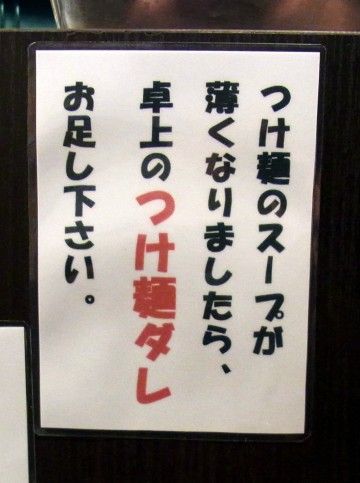 つけ麺のスープが
薄くなりましたら、
卓上のつけ麺ダレ
お足し下さい。